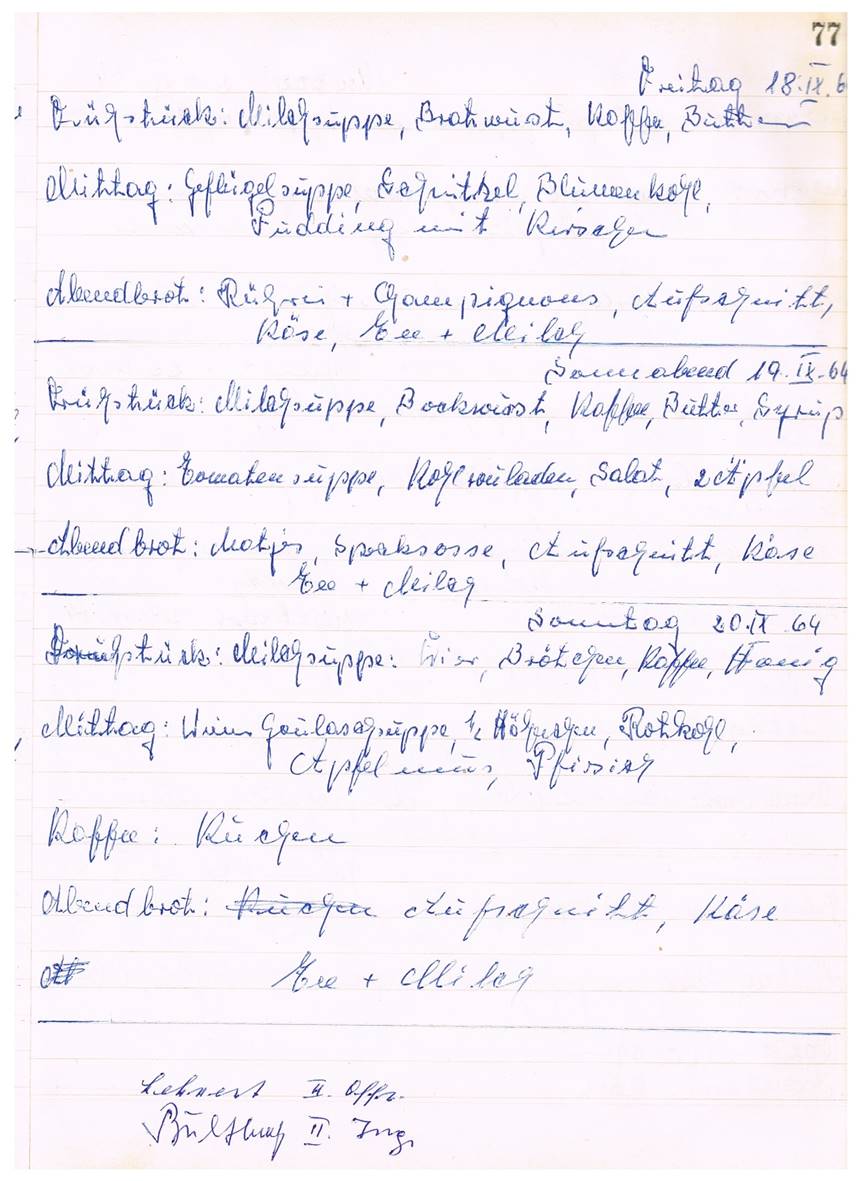 77
Freitag 18.IX.6
Frühstück: Milchsuppe, Bratwurst, Kaffee, Butter
Mittag: Geflügelsuppe, Schnitzel, Blumenkohl,
Pudding mit Kirschen
Abendbrot: Rührei + Champignons, Aufschnitt,
Käse, Tee + Milch
Sonnabend 19.IX.64
Frühstück: Milchsuppe, Bockwurst, Kaffee, Butter, Syrup
Mittag: Tomatensuppe, Kohlrouladen, Salat, 2 Äpfel
Abendbrot: Matjes, Specksosse, Aufschnitt, Käse
Tee + Milch
Sonntag 20.IX.64
Frühstück: Milchsuppe: Eier, Brötchen, Kaffee, Honig
Mittag: Goulaschsuppe, 1/2 Hähnchen, Rotkohl,
Apfelmus, Pfirsich
Kaffee: Kuchen
Abendbrot: Kuchen Aufschnitt, Käse
Tee + Milch
Lehnert II. Offz.
II. Ing.